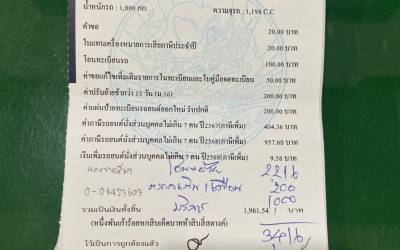 น้ำหนักรถ : 1,000 กก. ความจุรถ : 1,198 C.C
ค่าขอ 20.00 บาท
ใบแทนเครื่องหมายการเสียภาษีประจำปี 20.00 บาท
โอนทะเบียนรถ 100.00 บาท
ค่าขอแก้ไขเพิ่มเติมรายการในทะเบียนและใบคู่มือจดทะเบียน 50.00 บาท
ค่าปรับย้ายช้ากว่า 15 วัน (ม.16) 200.00 บาท
ค่าแผ่นป้ายทะเบียนรถยนต์ออกใหม่ รับปกติ 200.00 บาท
ค่าภาษีรถยนต์นั่งส่วนบุคคลไม่เกิน 7 คน ปี2567(ภาษีเพิ่ม) 404.36 บาท
ค่าภาษีรถยนต์นั่งส่วนบุคคลไม่เกิน 7 คน ปี2568(ภาษีเพิ่ม) 957.60 บาท
เงินเพิ่มรถยนต์นั่งส่วนบุคคลไม่เกิน 7 คน ปี2568(ภาษีเพิ่ม) 9.58 บาท
2216
200
บริการ 1000
รวมเป็นเงินทั้งสิ้น 1,961.54
(หนึ่งพันเก้าร้อยหกสิบเอ็ดบาทห้าสิบสี่สตางค์) 3416
ไว้เป็นการถูกต้องแล้ว